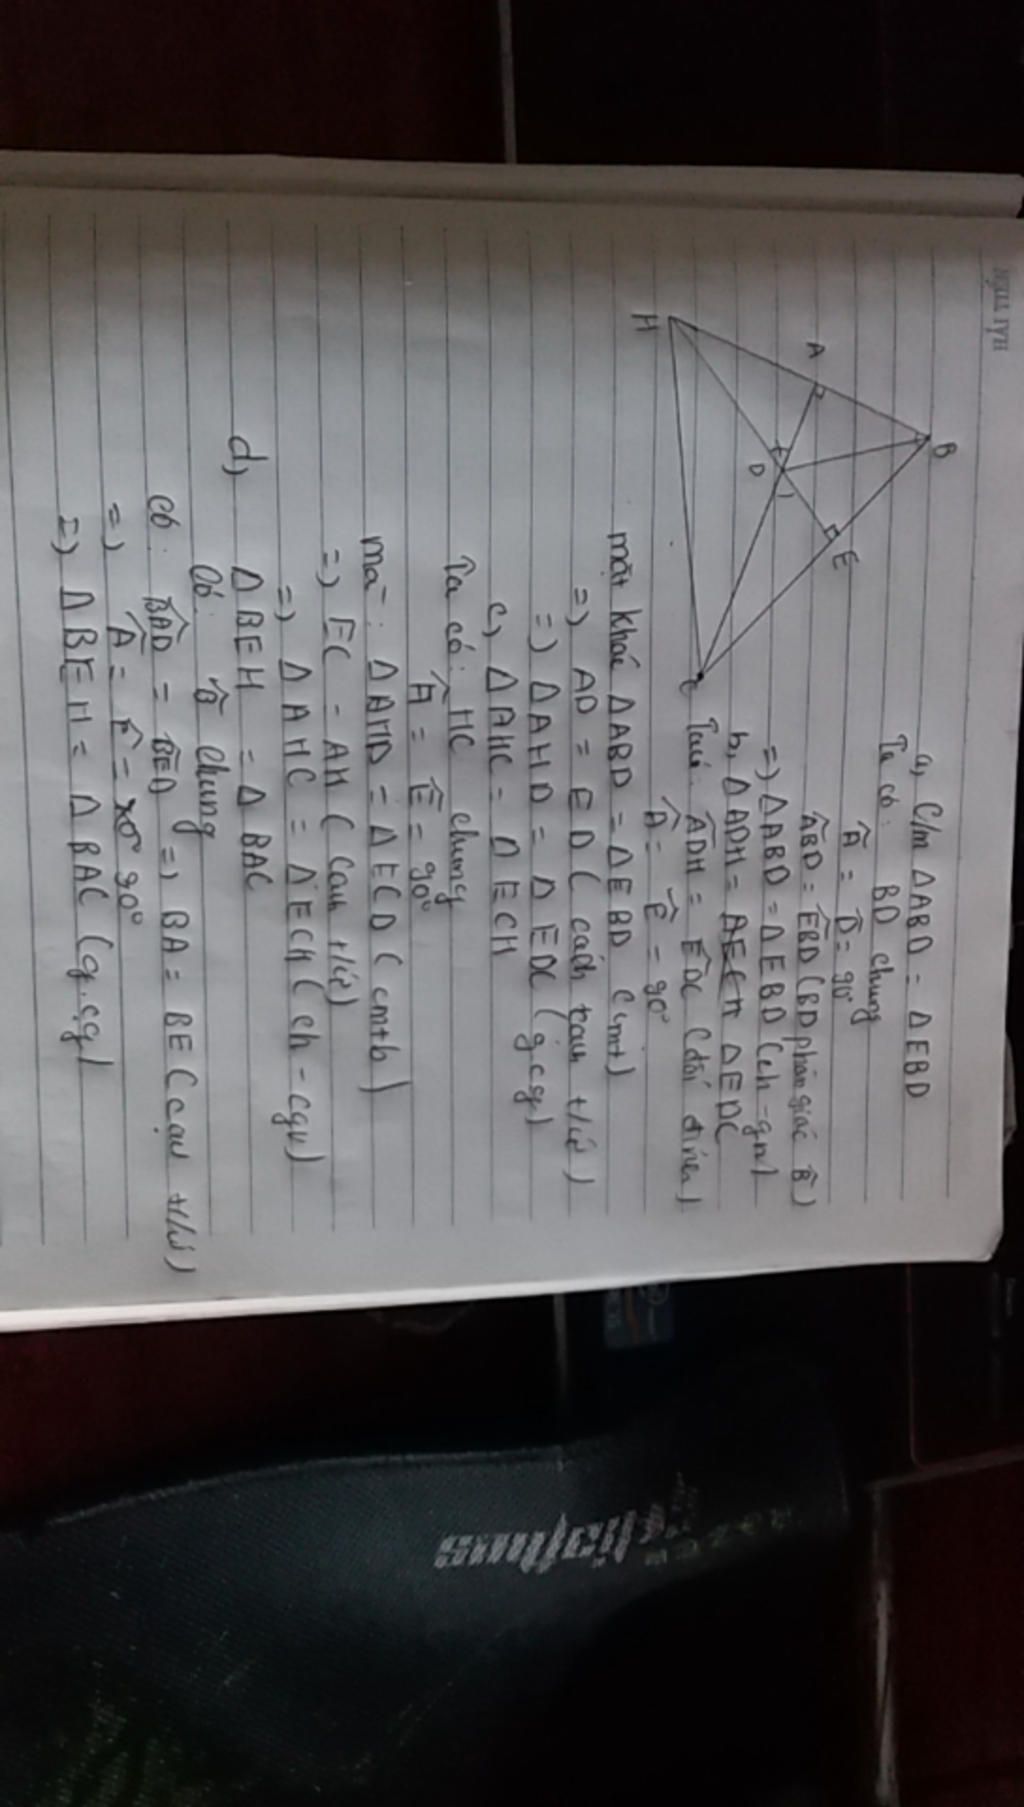 HẢI TIẾN
a, C/m ΔABD = ΔEBD
Ta có: BD chung
Â = D̂ = 90°
ABD = EBD (BD phân giác B̂)
=) ΔABD = ΔEBD (ch - gn)
b, ΔADH = ΔEDC
Ta có: ADH = EDC (đối đỉnh)
Â = Ê = 90°
mặt khác ΔABD = ΔEBD (cmt)
=) AD = ED (cách tach t/ứ)
=) ΔAHD = Δ EDC (g.cg)
c, ΔAHC = Δ ECH
Ta có: HC chung
Â = Ê = 90°
mà: ΔAHD = ΔECD (cmtb)
=) EC = AH (canh t/ứ)
=) ΔAHC = ΔECH (ch - cgv)
d, ΔBEH = Δ BAC
Có: B̂ chung
có: BAD = BED =) BA = BE (cạu t/ứ)
=) Â = Ê = 90°
=) ΔBEH = Δ BAC (g.cg)
B
A
E
H
D
C